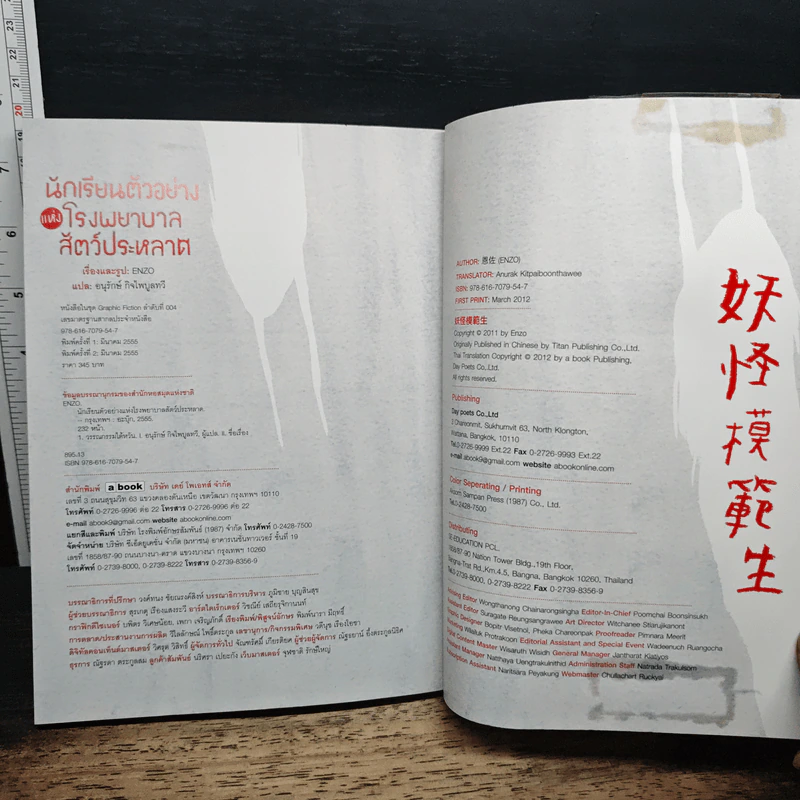 นักเรียนตัวอย่าง
แห่ง โรงพยาบาล
สัตว์ประหลาด
เรื่องและรูป: ENZO
แปล: อนุรักษ์ กิจไพบูลทวี
หนังสือในชุด Graphic Fiction ลำดับที่ 004
เลขมาตรฐานสากลประจำหนังสือ
978-616-7079-54-7
พิมพ์ครั้งที่ 1: มีนาคม 2555
พิมพ์ครั้งที่ 2: มีนาคม 2555
ราคา 345 บาท
ข้อมูลบรรณานุกรมของสำนักหอสมุดแห่งชาติ
ENZO.
นักเรียนตัวอย่างแห่งโรงพยาบาลสัตว์ประหลาด.
-- กรุงเทพฯ : อะบุ๊ก, 2555.
232 หน้า.
1. วรรณกรรมไต้หวัน. I. อนุรักษ์ กิจไพบูลทวี, ผู้แปล. II. ชื่อเรื่อง
895.13
ISBN 978-616-7079-54-7
สำนักพิมพ์ a book บริษัท เดย์ โพเอทส์ จำกัด
เลขที่ 3 ถนนสุขุมวิท 63 แขวงคลองตันเหนือ เขตวัฒนา กรุงเทพฯ 10110
โทรศัพท์ 0-2726-9996 ต่อ 22 โทรสาร 0-2726-9996 ต่อ 22
e-mail abook9@gmail.com website abookonline.com
แยกสีและพิมพ์ บริษัท โรงพิมพ์อักษรสัมพันธ์ (1987) จำกัด โทรศัพท์ 0-2428-7500
จัดจำหน่าย บริษัท ซีเอ็ดยูเคชั่น จำกัด (มหาชน) อาคารเนชั่นทาวเวอร์ ชั้นที่ 19
เลขที่ 1858/87-90 ถนนบางนา-ตราด แขวงบางนา กรุงเทพฯ 10260
โทรศัพท์ 0-2739-8000, 0-2739-8222 โทรสาร 0-2739-8356-9
บรรณาธิการที่ปรึกษา วงศ์ทนง ชัยณรงค์สิงห์ บรรณาธิการบริหาร ภูมิชาย บุญสินสุข
ผู้ช่วยบรรณาธิการ สุรเกตุ เรืองแสงระวี อาร์ตไดเร็กเตอร์ วิชณีย์ เสถียรุจิกานนท์
กราฟิกดีไซเนอร์ บพิตร วิเศษน้อย, เพกา เจริญภักดิ์ เรียงพิมพ์/พิสูจน์อักษร พิมพ์นารา มีฤทธิ์
การตลาด/ประสานงานการผลิต วิไลลักษณ์ โพธิ์ตระกูล เลขานุการ/กิจกรรมพิเศษ วดีนุช เรืองโยชา
ดิจิทัลคอนเท็นต์มาสเตอร์ วิศรุต วิสิทธิ์ ผู้จัดการทั่วไป จัณฑรัศมิ์ เกียรติยศ ผู้ช่วยผู้จัดการ ณัฐธยาน์ อึ้งตระกูลนิธิศ
ธุรการ ณัฐรดา ตระกูลสม ลูกค้าสัมพันธ์ นริศรา เปยะกัง เว็บมาสเตอร์ จุฬชาติ รักษ์ใหญ่
AUTHOR: 恩佐 (ENZO)
TRANSLATOR: Anurak Kitpaiboonthawee
ISBN: 978-616-7079-54-7
FIRST PRINT: March 2012
妖怪模範生
Copyright © 2011 by Enzo
Originally Published in Chinese by Titan Publishing Co.,Ltd.
Thai Translation Copyright © 2012 by a book Publishing,
Day Poets Co.,Ltd.
All rights reserved.
Publishing
Day poets Co.,Ltd
3 Charoenmit, Sukhumvit 63, North Klongton,
Wattana, Bangkok, 10110
Tel.0-2726-9999 Ext.22 Fax 0-2726-9993 Ext.22
e-mail abook9@gmail.com website abookonline.com
Color Seperating / Printing
Aksorn Sampan Press (1987) Co., Ltd.
Tel.0-2428-7500
Distributing
SE-EDUCATION PCL.
1858/87-90 Nation Tower Bldg.,19th Floor,
Bangna-Trat Rd.,Km.4.5, Bangna, Bangkok 10260, Thailand
Tel.0-2739-8000, 0-2739-8222 Fax 0-2739-8356-9
Editor Wongthanong Chainarongsingha Editor-In-Chief Poomchai Boonsinsukh
Assistant Editor Suragate Reungsangrawee Art Director Witchanee Sitarujikanont
Graphic Designer Bopitr Visetnoi, Phaeka Chareonpak Proofreader Pimnara Meerit
Wilailuk Protrakoon Editorial Assistant and Special Event Wadeenuch Ruangocha
Content Master Wisaruth Wisidh General Manager Jantharat Kiatiyos
Manager Natthaya Uengtrakulnithid Administration Staff Natrada Trakulsom
Assistant Naritsara Peyakung Webmaster Chullachart Ruckyai
妖怪模範生